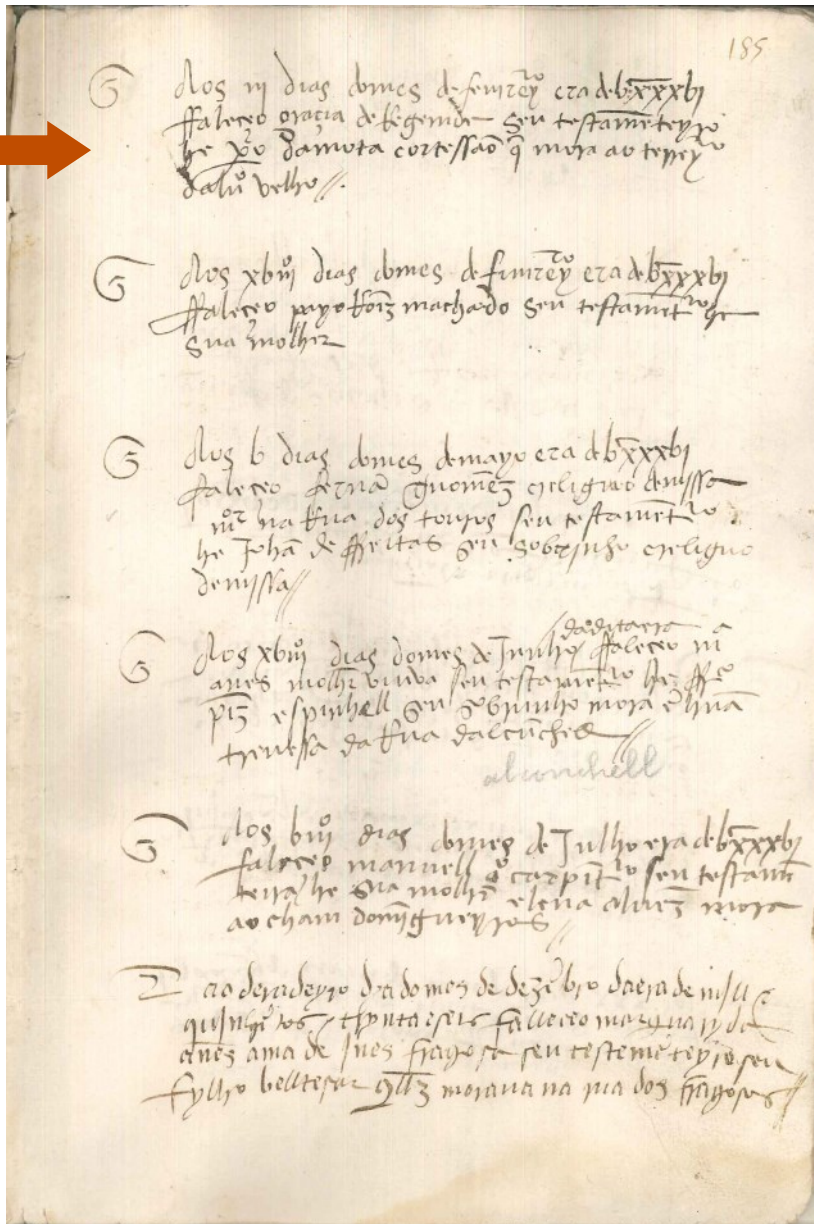 185
Aos iij dias do mes de fevreyro era de bcxxxbj
ffaleçeo gracia de Resende seu testamẽteyro
he po da mota cortessaõ q̃ mora ao terreyro
dalvo velho //.
Aos xbiijo dias do mes de fevreyro era de bcxxxbj
ffaleçeo payo Roiz machado seu testamẽtro he
sua molher
Aos b dias do mes de mayo era de bcxxxbj
faleçeo fernã guomez creliguo de missa
mor na Rua dos touros seu testamentro
he Johã de ffreitas seu sobrinho creliguo
de missa //
da dita era
Aos xbiijo dias do mes de Junho ffaleçeo ma
anes molher viuva seu testamẽtro he
piz espinhell seu sobrinho mora ẽ hũa
trevessa da Rua dalcũchel //
alconchell
Aos biijo dias do mes de Julho era de bcxxxbj
faleçeo manuell carpĩtro seu testamẽ
teira he sua molher elena alvez mora
ao cham domĩgueyros //
ao deradeyro dia do mes de dezẽbro da era de mjll e
quinhẽtos e trynta e seis falleceo marguaryda
anes ama de Ines fragosa seu testemẽteyro seu
fylho belltesar morava na rua dos fragosos //